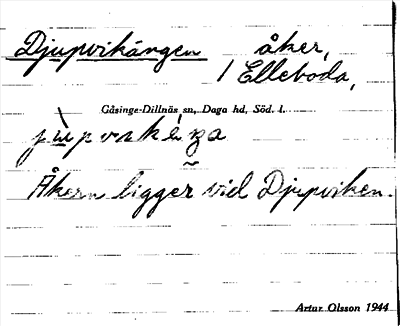 Djupvikängen åker,
1 Elleboda,
Gåsinge-Dillnäs sn, Daga hd, Söd. l.
Åkern ligger vid Djupviken.
Artur Olsson 1944